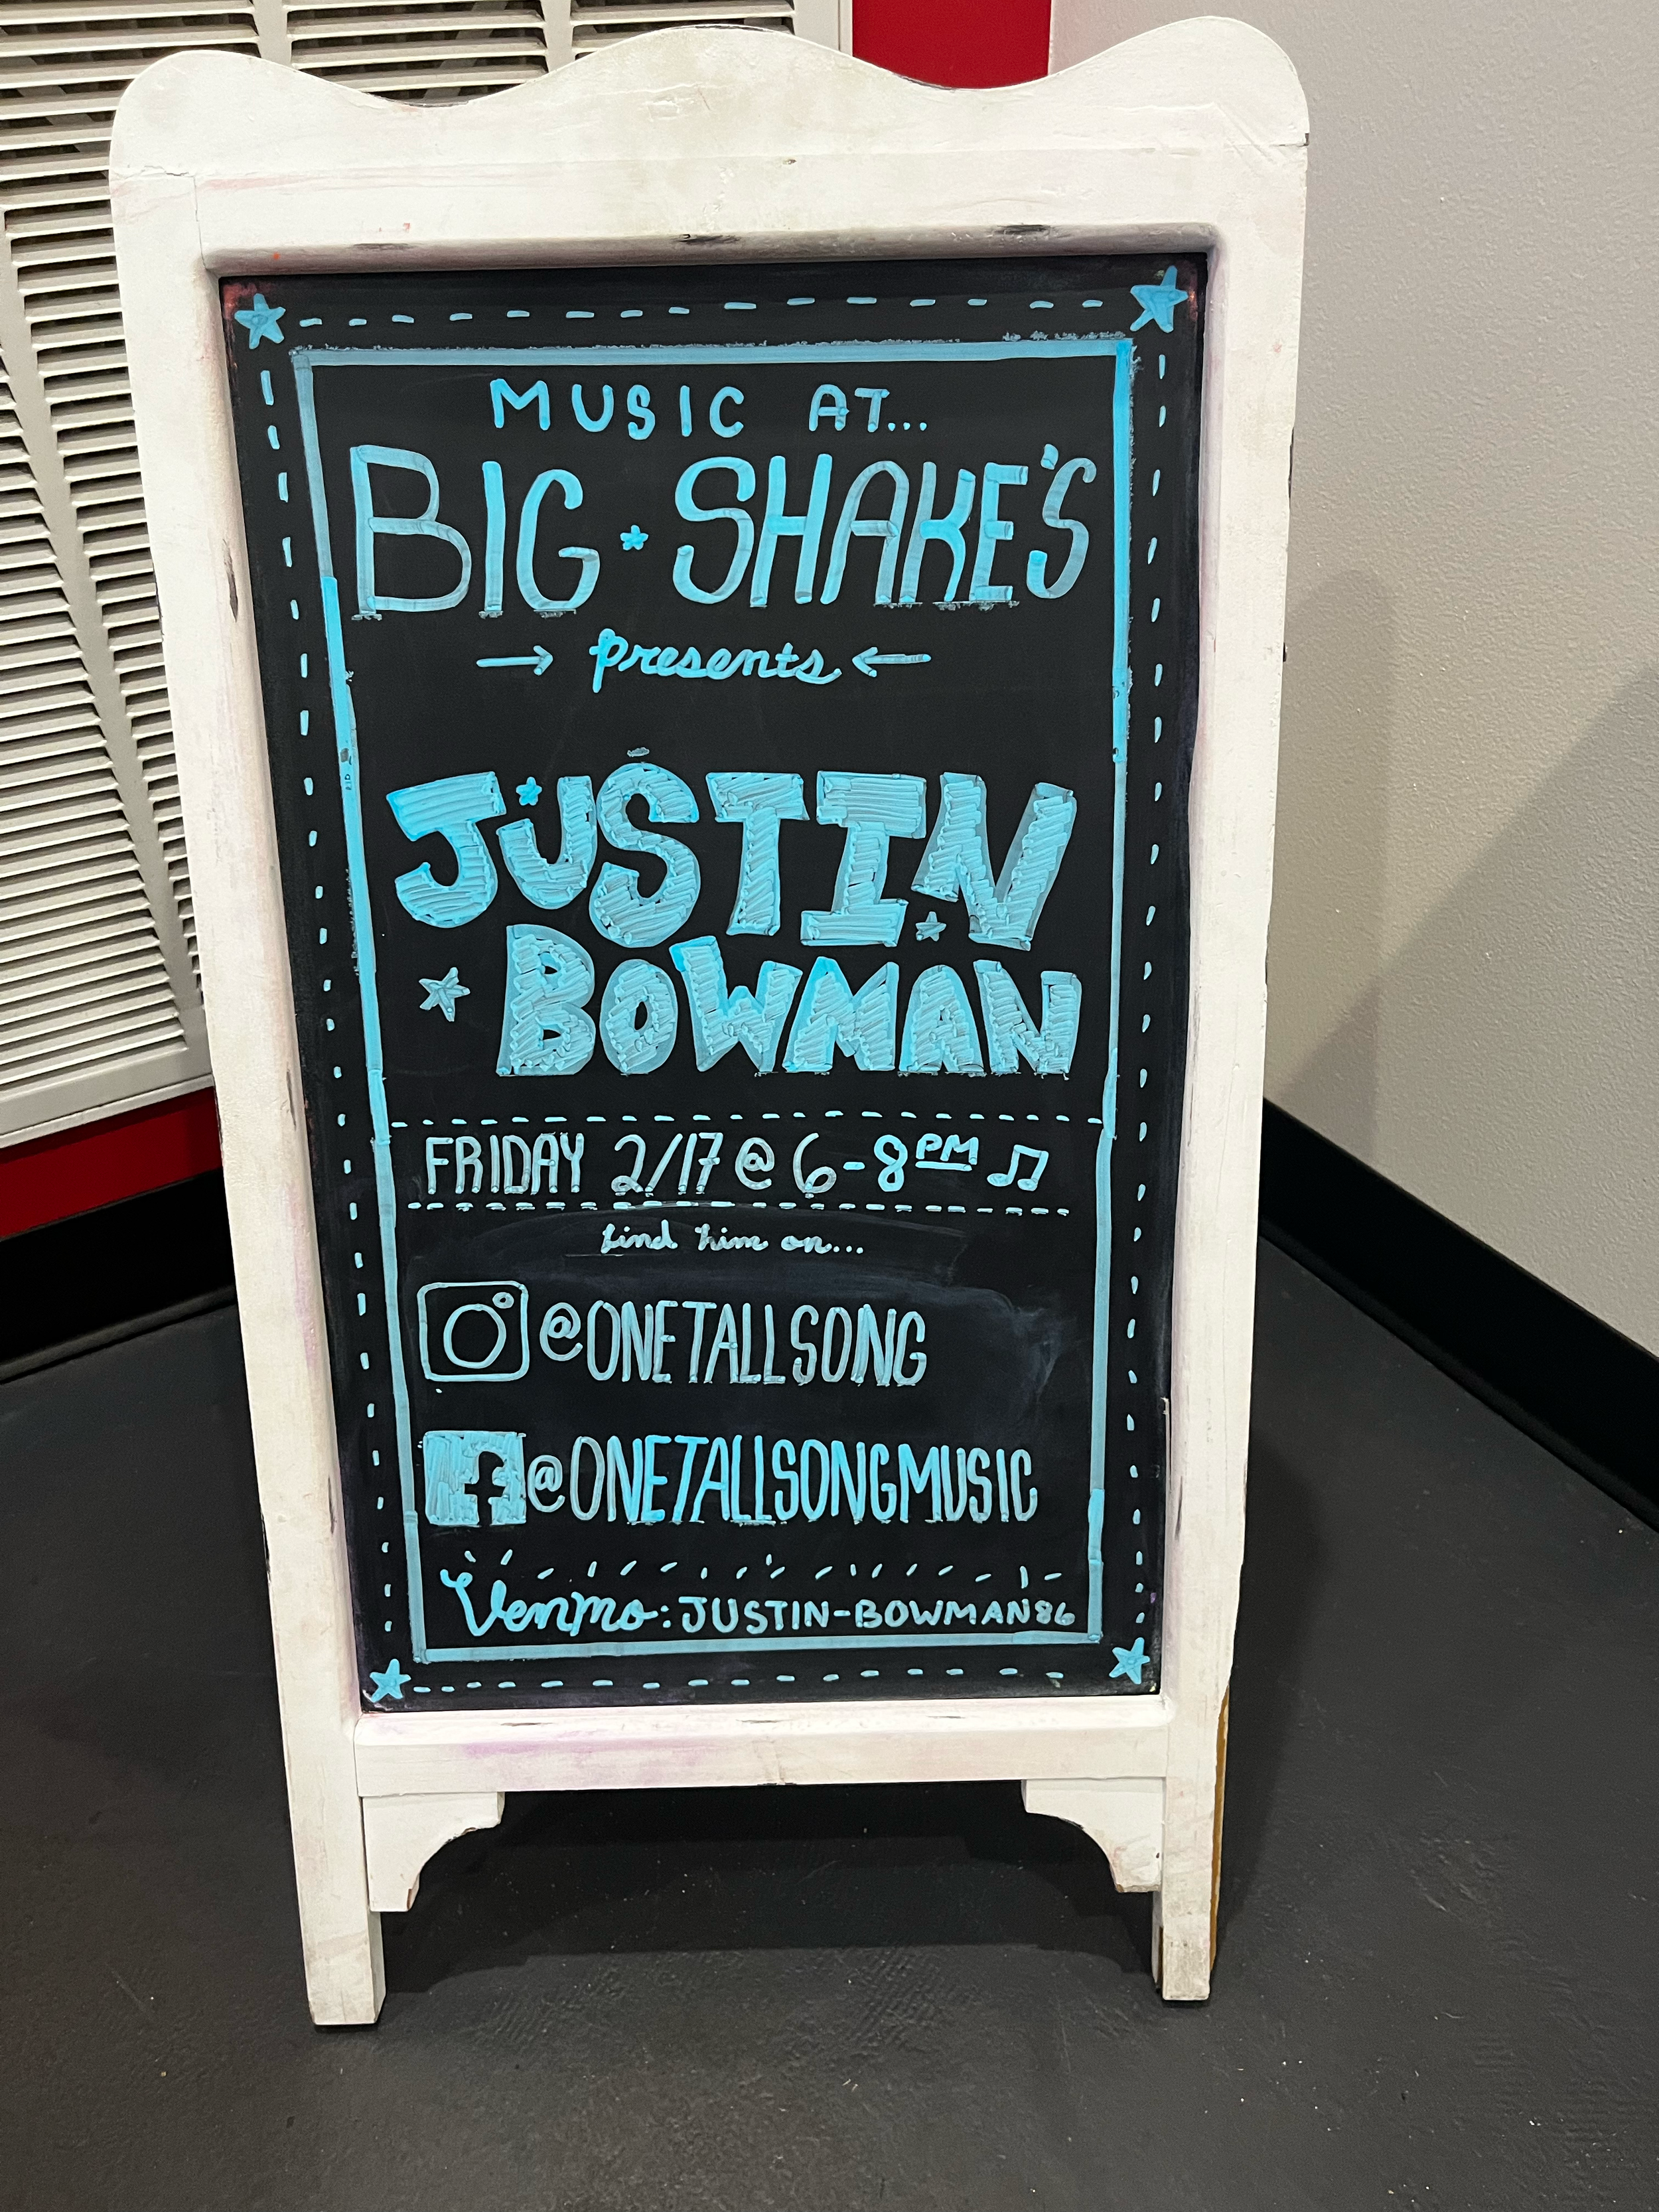 MUSIC AT...
BIG SHAKE'S
→ presents ←
JUSTIN
BOWMAN
FRIDAY 2/17 @ 6-8PM ♫
find him on...
@ONETALLSONG
@ONETALLSONGMUSIC
Venmo: JUSTIN-BOWMAN86